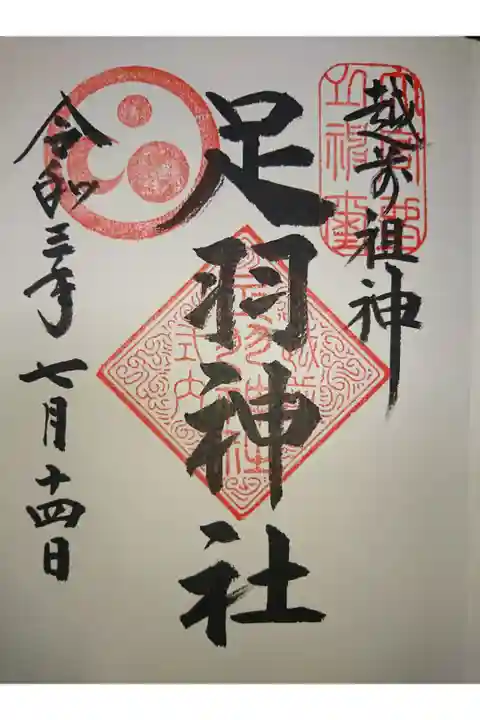 越前祖神
足羽神社
令和三年七月十四日
越前
足羽神社
式内